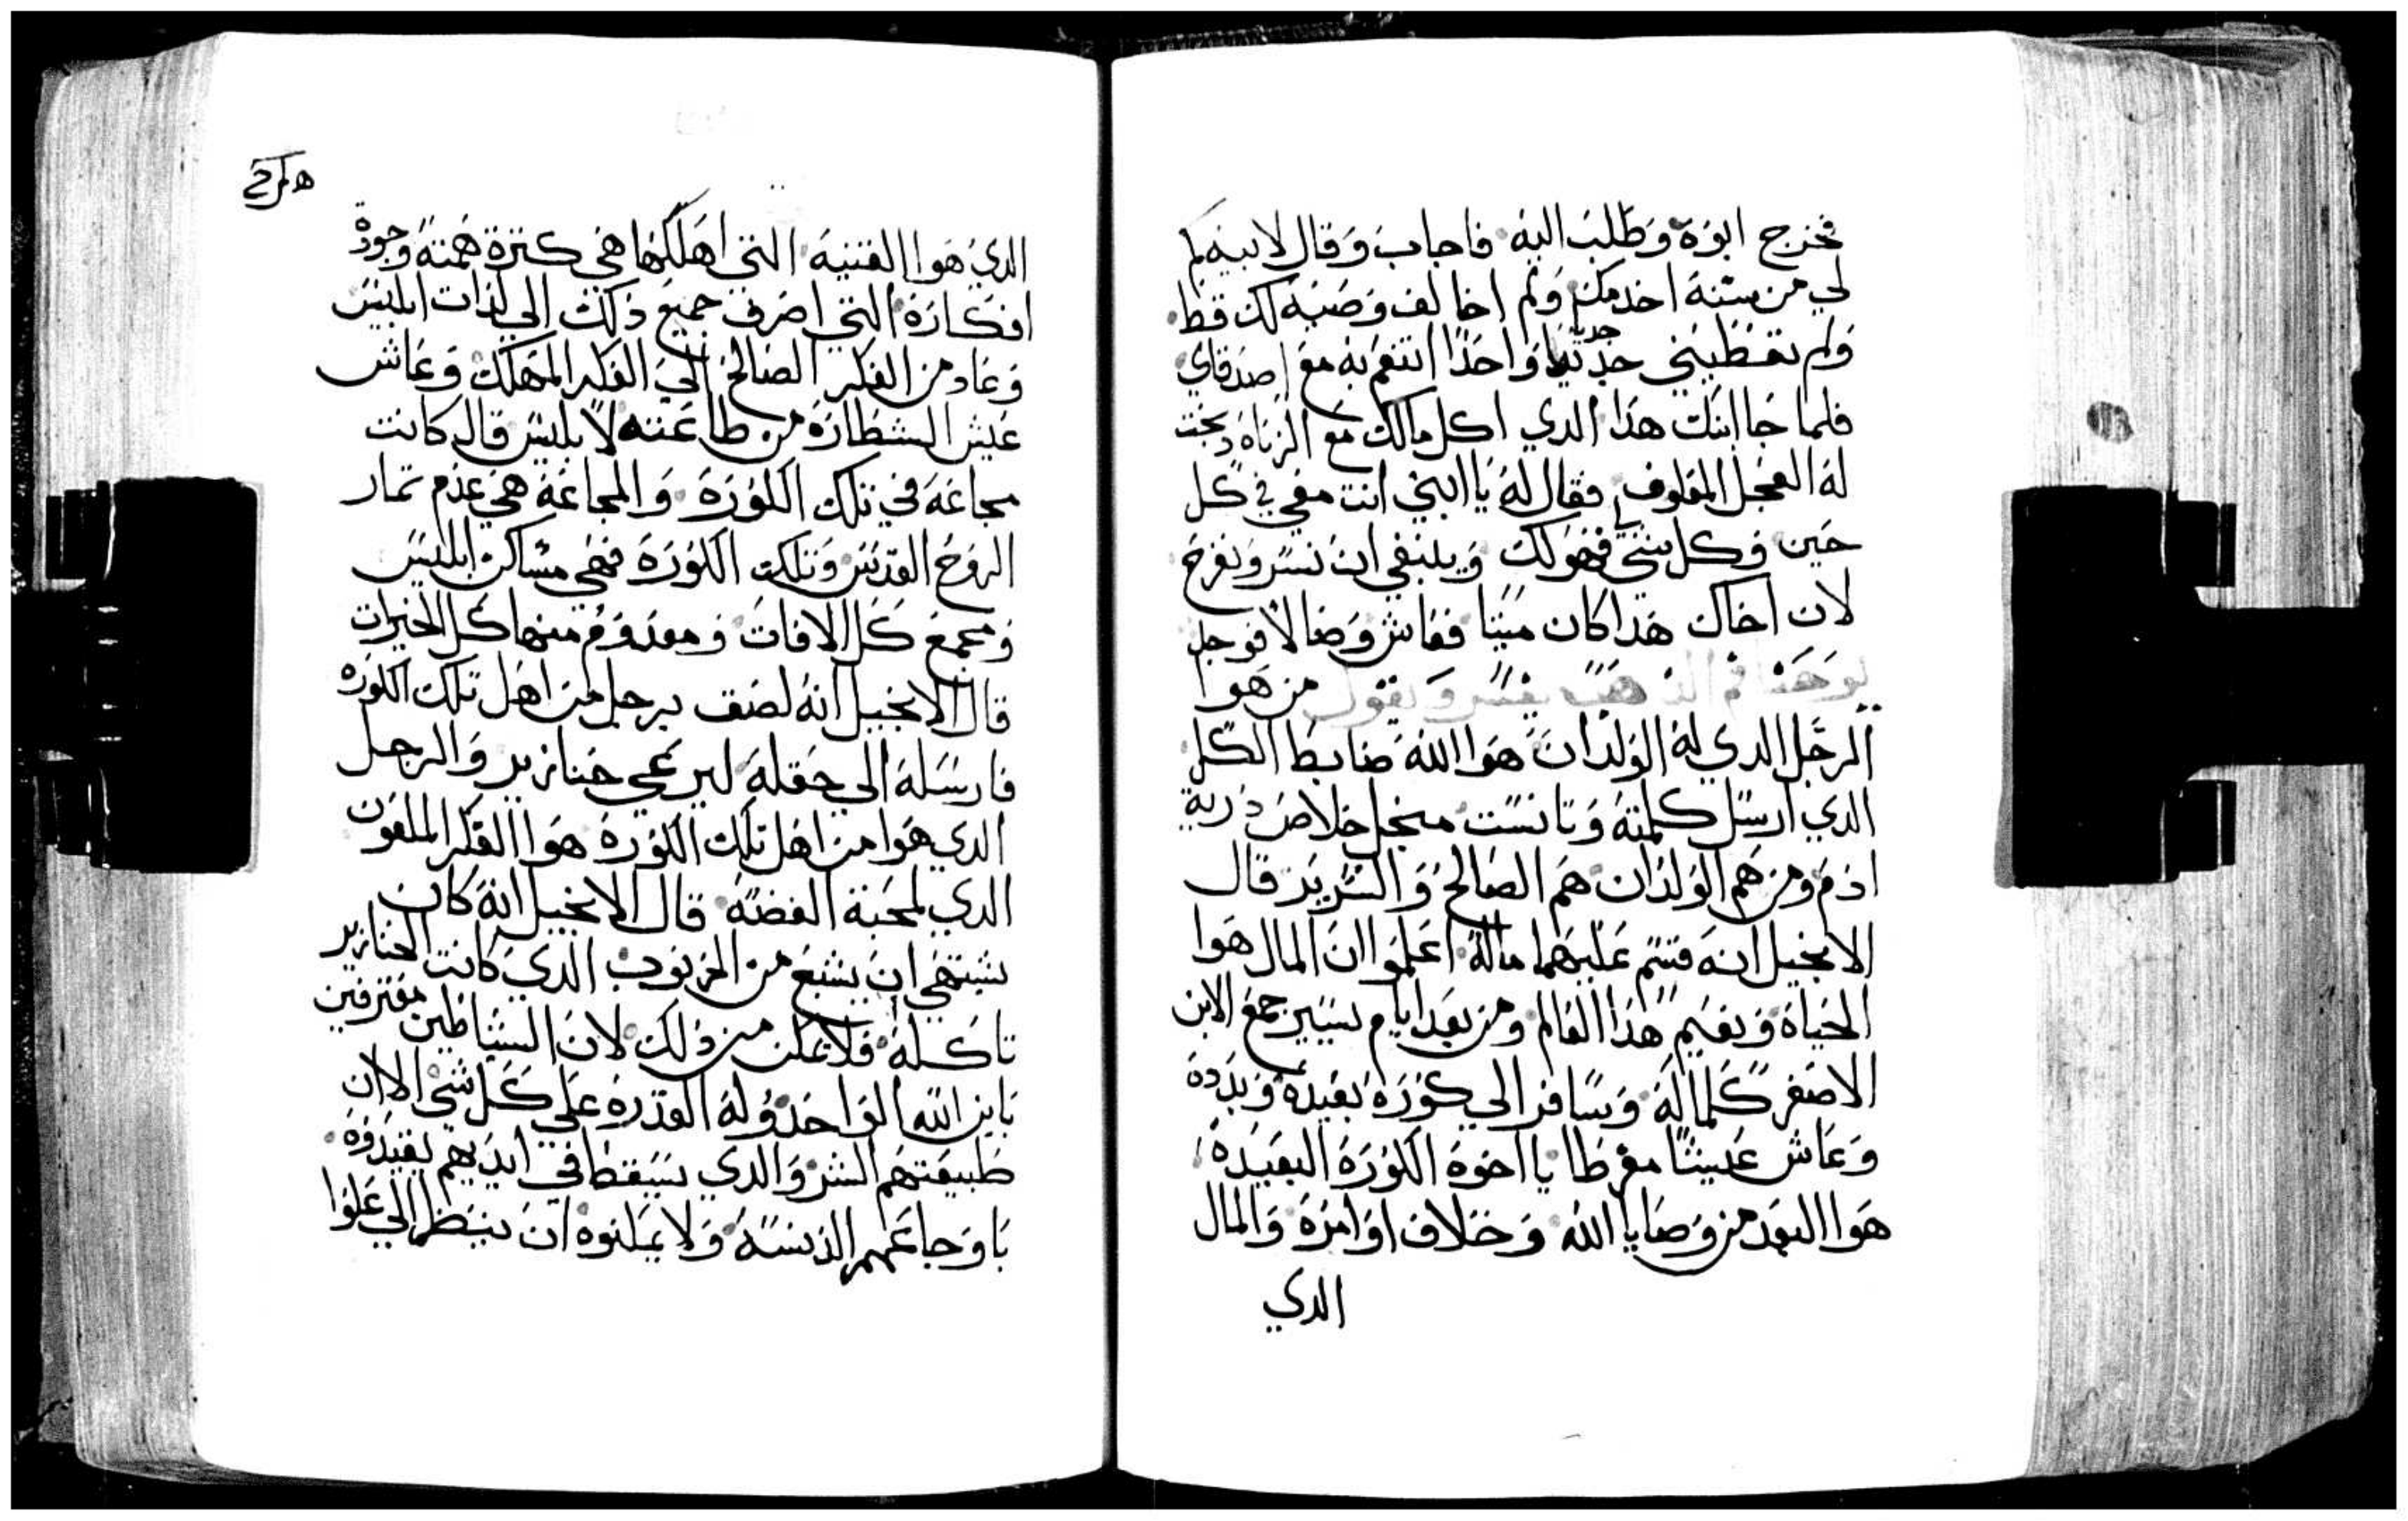 فخرج ابوه وطلب اليه فاجاب وقال لابيه كم
لي من سنة اخدمك ولم اخالف وصية لك قط
ولم تعطيني جديا واحدا اتنعم به مع اصدقاي
فلما جا ابنك هدا الدي اكل مالك مع الزناه دبحت
له العجل المعلوف فقال له يا ابني انت معي في كل
حين وكل شي فهو لك وينبغي ان نسر ونفرح
لان اخاك هدا كان ميتا فعاش وضالا فوجد
يوحنا فم الدهب يفسر ويقول من هوا
الرجل الدي له الولدان هوا الله ضابط الكل
الدي ارسل كلمته وتانست منجل خلاص درية
ادم ومن هم الولدان هم الصالح والشرير قال
الانجيل انه قسم عليهما ماله اعلموا ان المال هوا
الحياه ونعيم هدا العالم ومن بعد ايام يسير جمع الابن
الاصغر كلماله وسافر الي كورة بعيدة وبدده
وعاش عيشا مفرطا يا اخوه الكورة البعيدة
هوا البعد من وصايا الله وخلاف اوامره والمال
الدي
الدي هوا القنية التي اهلكها هي كترة همته وجودة
افكاره التي اصرف جميع دلك الي لدات ابليس
وعاد من الفكر الصالح الي الفكر المهلك وعاش
عيش الشطارة من طاعته لابليس قال كانت
مجاعة في تلك الكورة والمجاعة هي عدم تمار
الروح القدس وتلك الكورة فهي مساكن ابليس
ومجمع كل الافات ومعدوم منها كل الخيرات
قال الانجيل انه لصق برجل من اهل تلك الكوره
فارسله الي حقله ليرعي خنازير والرجل
الدي هوا من اهل تلك الكورة هوا الفكر الملعون
الدي لمحبة الفضة قال الانجيل انه كان
يشتهي ان يشبع من الخرنوب الدي كانت الخنازير
تاكله فلا يمكن من دلك لان الشياطين معترفين
بابن الله الواحد وله القدرة علي كل شي الا ان
طبيعتهم الشر والدي يسقط في ايديهم يقيدوه
باوجاعهم الدنسة ولا يملوه ان ينظر الي علوا